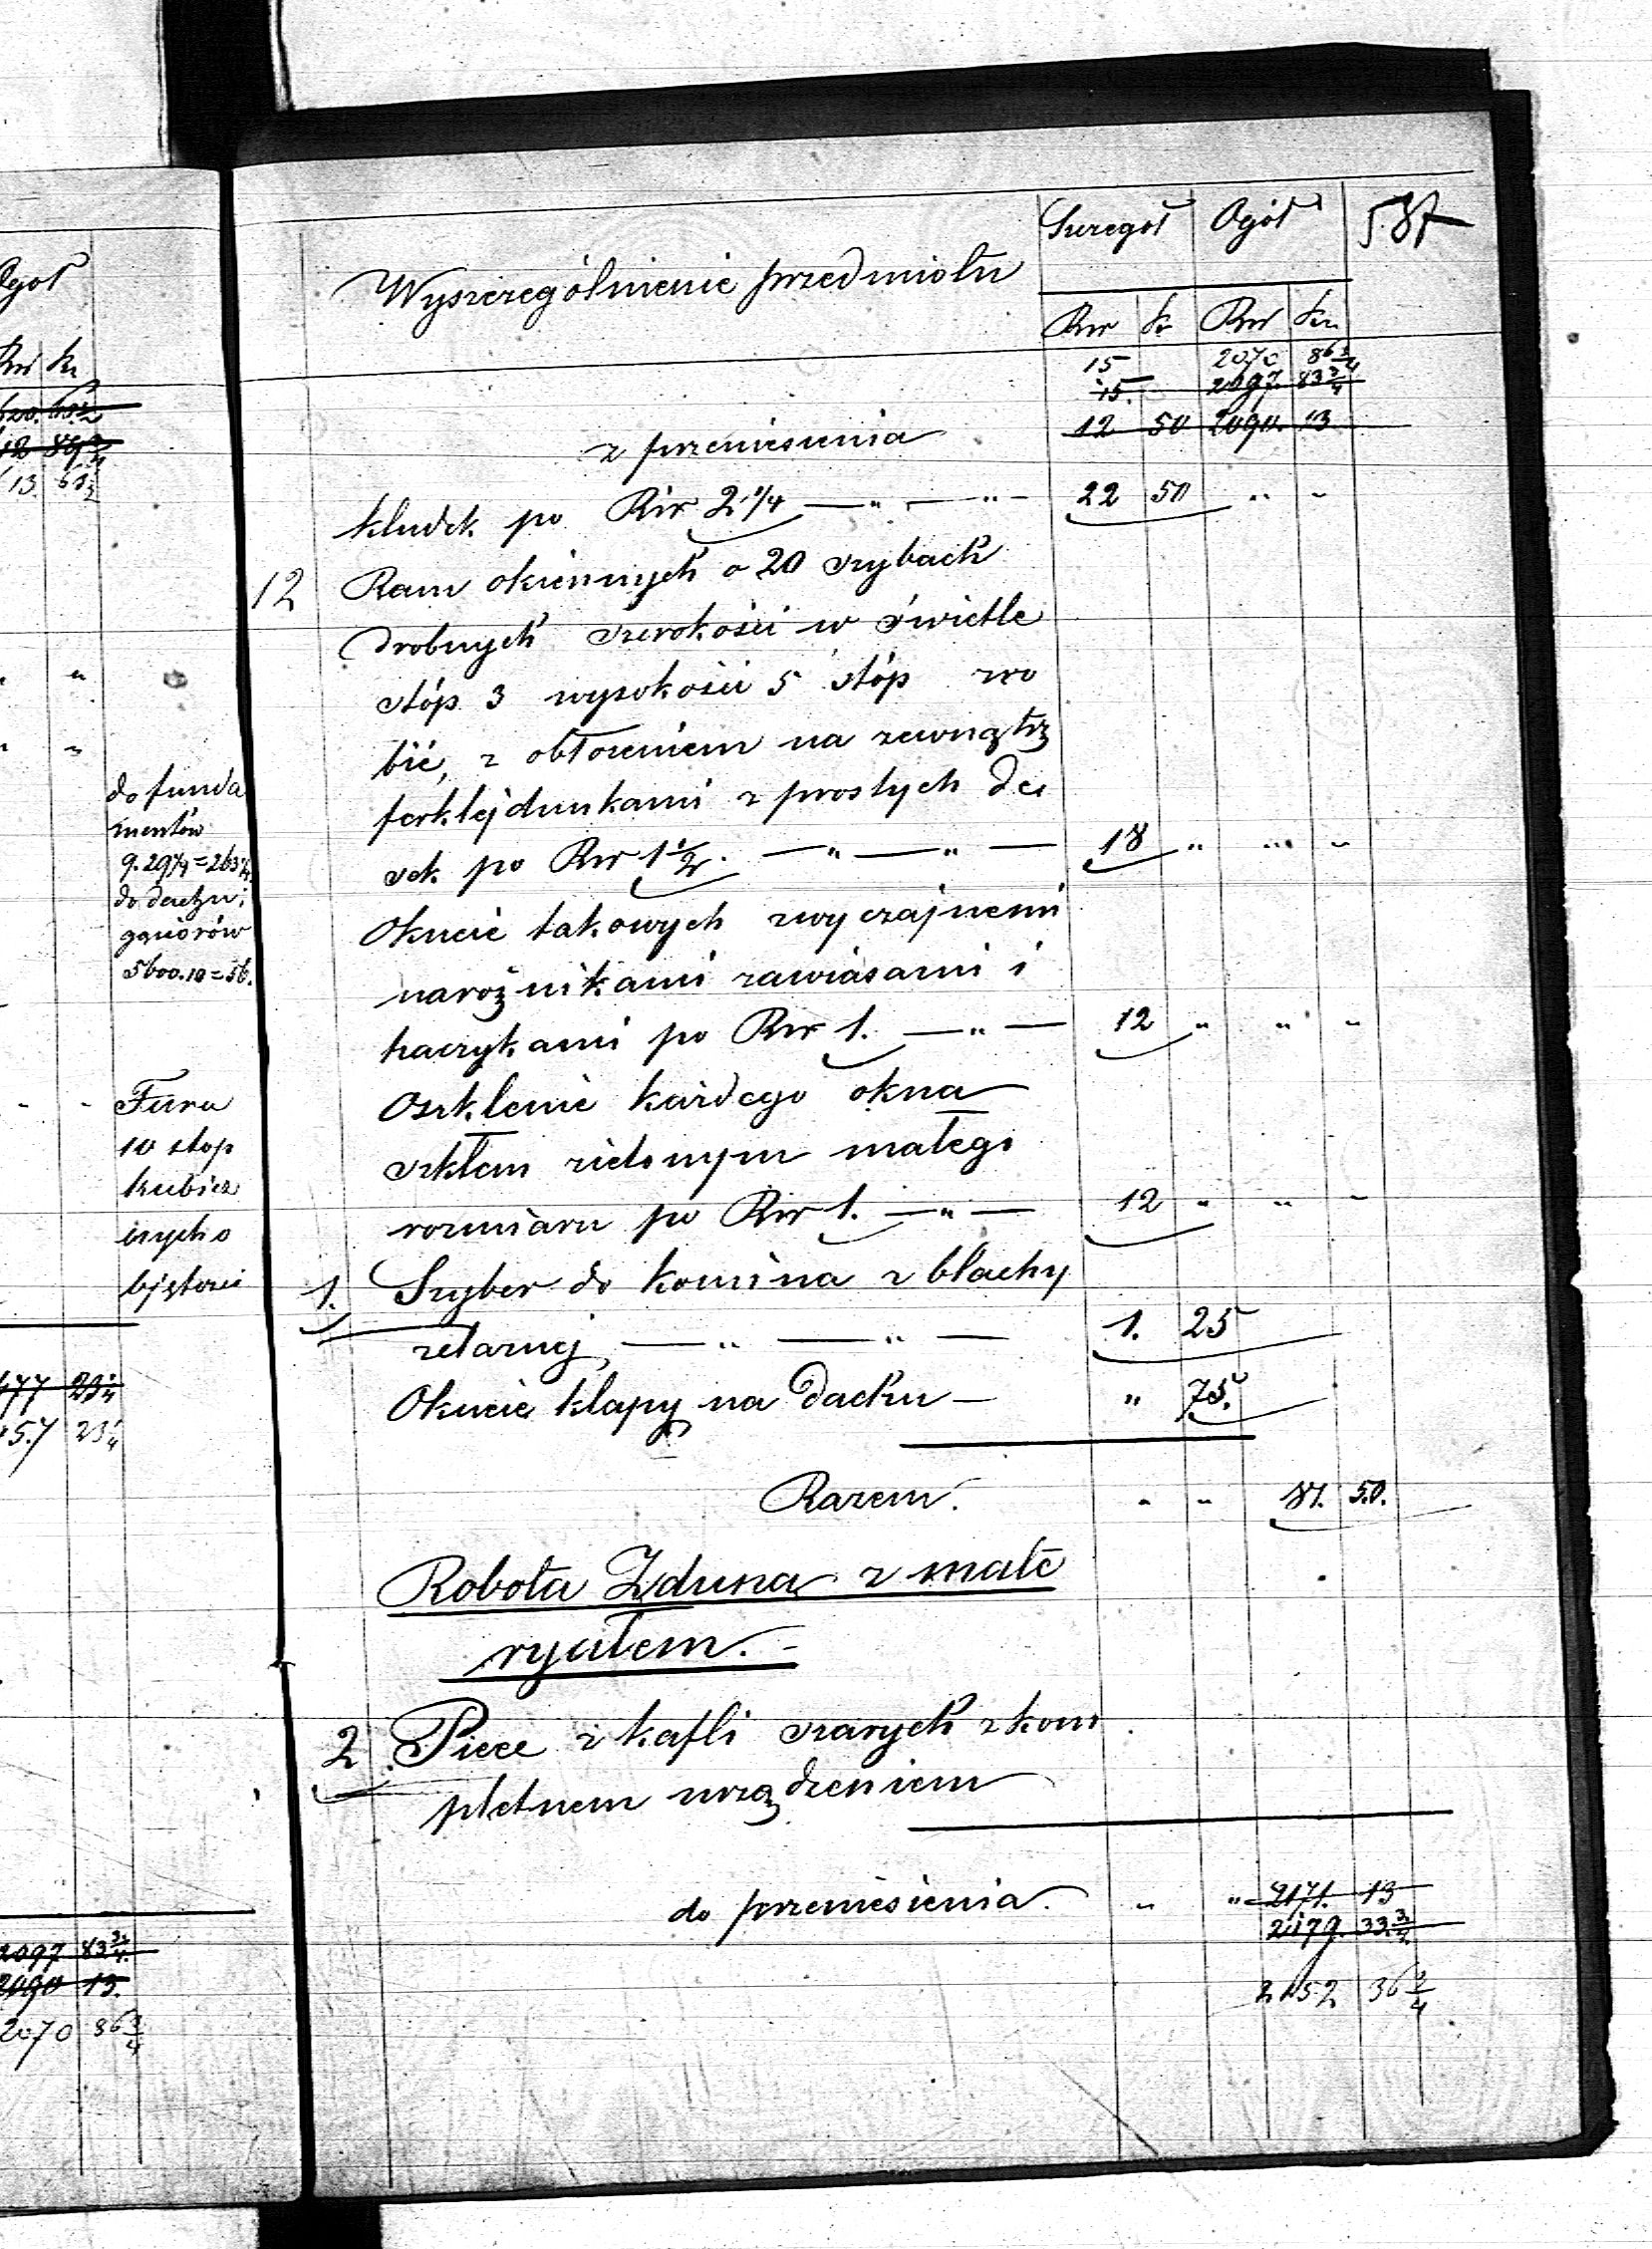 Ogół
Rsr kr
620. 63½
12 89¾
13. 63½
do funda
mentów
9.29¼=263¼
do dachu i
gąsiorów
5600.10=56.
Fura
10 stop
kubicz
nych o
bjętości
477 23¼
457 23¼
2097 83¾
2090 13.
2070 86¾
Szczegół Ogół 587
Wyszczególnienie przedmiotu
Rsr kr Rsr kr.
15 2070 86¾
15. 2097. 83¾
z przeniesienia 12 50 2090. 13
kłudek po Rsr 2¼ — " — " — 22 50 " "
12 Ram okiennych o 20 szybach
drobnych szerokości w świetle
stóp 3 wysokości 5 stóp zro
bić, z obłożeniem na zewnątrz
ferklejdunkami z prostych de
sek po Rsr 1½. — " — " — 18 " " "
Okucie takowych zwyczajnemi
narożnikami zawiasami i
haczykami po Rsr 1. — " — 12 " " "
Oszklenie każdego okna
szkłem zielonym małego
rozmiaru po Rsr 1. — " — 12 " " "
1. Szyber do komina z blachy
żelaznej, — " — " — 1. 25
Okucie klapy na dachu — " 75.
Razem. " " 81. 50.
Robota Zduna z mate
ryałem. -
2 Piece z kafli szarych z kom
pletnem urządzeniem
do przeniesienia. " " 2171. 13
2179. 33¾
2152 36¾